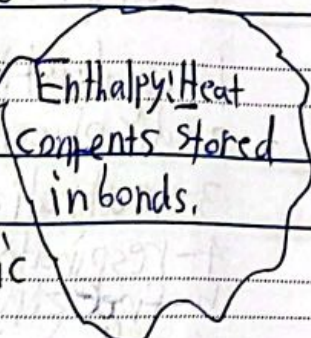 Enthalpy: Heat
contents stored
in bonds.
ic